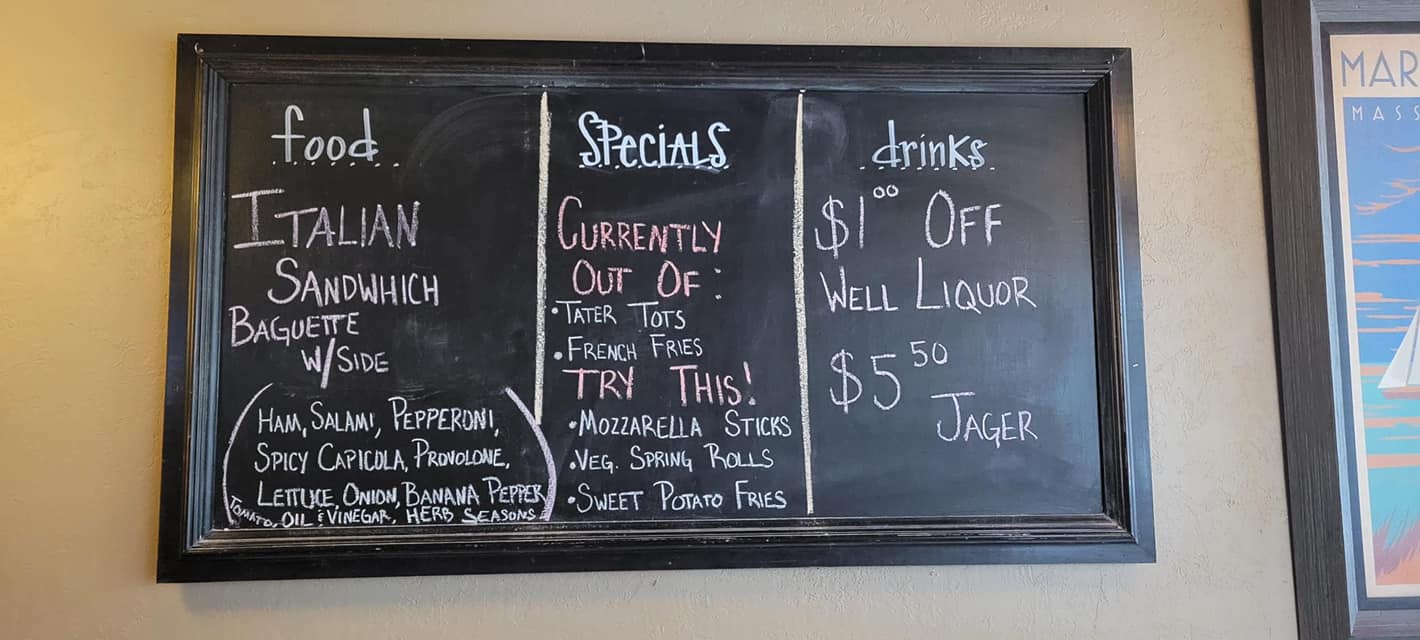 food
ITALIAN
SANDWHICH
BAGUETTE
W/SIDE
(HAM, SALAMI, PEPPERONI,
SPICY CAPICOLA, PROVOLONE,
LETTUCE, ONION, BANANA PEPPER
TOMATO, OIL & VINEGAR, HERB SEASONS)
SPECIALS
CURRENTLY
OUT OF:
• TATER TOTS
• FRENCH FRIES
TRY THIS!
• MOZZARELLA STICKS
• VEG. SPRING ROLLS
• SWEET POTATO FRIES
drinks
$1.00 OFF
WELL LIQUOR
$5.50
JAGER
MAR
MASS